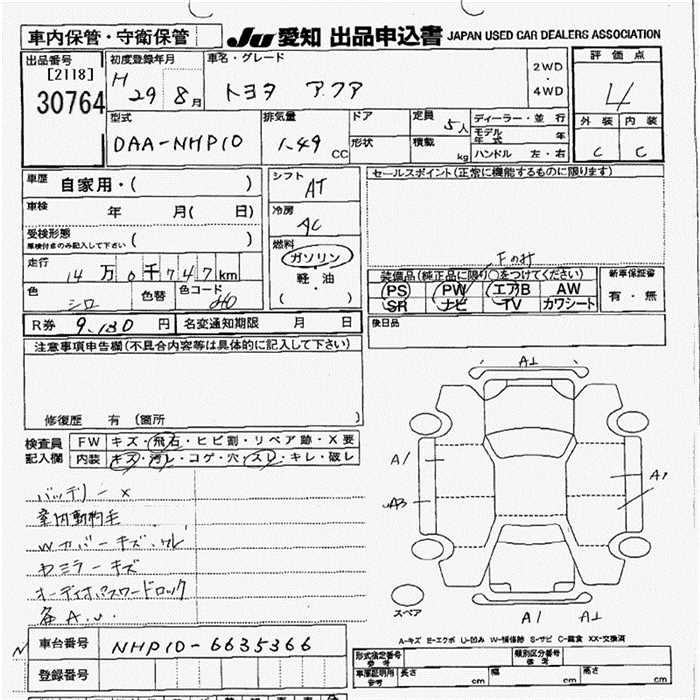 車内保管・守衛保管 JU 愛知 出品申込書 JAPAN USED CAR DEALERS ASSOCIATION
出品番号 [2118] 30764
初度登録年月 H 29 8月
車名・グレード トヨタ アクア
2WD ・ 4WD
評価点 4
外装 内装
C C
型式 DAA-NHP10
排気量 1.49 CC
ドア
形状
定員 5人
積載 kg
ディーラー・並行
モデル年式 年
ハンドル 左・右
車歴 自家用・( )
車検 年 月( 日)
受検形態 ( )
車検付きのみ記入して下さい
走行 14万0千747km
色 シロ 色替 色コード 040
シフト AT
冷房 AC
燃料 ガソリン・軽・油 ( )
セールスポイント(正常に機能するものに限ります)
装備品(純正品に限り○をつけてください)
PS PW エアB AW
SR ナビ TV カワシート
新車保証書 有・無
後日品
R券 9,130円 名変通知期限 月 日
注意事項申告欄(不具合内容等は具体的に記入して下さい)
修復歴 有 (箇所 )
検査員記入欄
FW キズ・飛石・ヒビ割・リペア跡・X要
内装 キズ・汚レ・コゲ・穴・スレ・キレ・破レ
バッテリー X
室内動物毛
Wカバーキズ・ワレ
ヤミラーキズ
オーディオパスワードロック
各A.U.
A1
A1
A3
A1
A1
A1
スペア
A-キズ E-エクボ U-凹み W-補修跡 S-サビ C-腐食 XX-交換済
車台番号 NHP10-6635366
登録番号
形式指定番号 参考
類別区分番号 参考
車庫証明用 参考 長さ cm 幅 cm 高さ cm